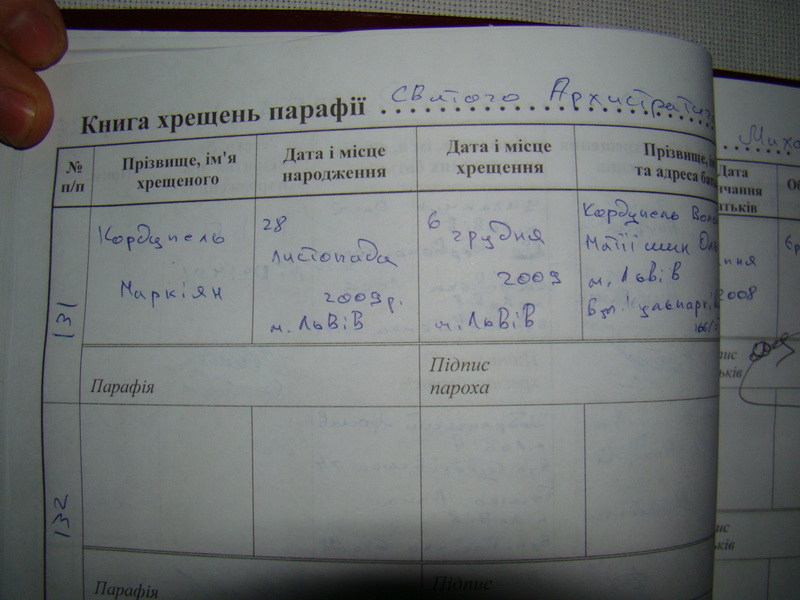 Книга хрещень парафії Святого Архистратиг
Михa
№ п/п
Прізвище, ім'я хрещеного
Дата і місце народження
Дата і місце хрещення
Прізвище, ім
та адреса бать
Дата
нчання
атьків
131
Кордупель
Маркіян
28
листопада
2009 р.
м. Львів
6
грудня
2009
м. Львів
Кордупель
м. Львів
вул.
2008
Парафія
Підпис
пароха
пис
ьків
132
Парафія
Підпис
ис
ьків